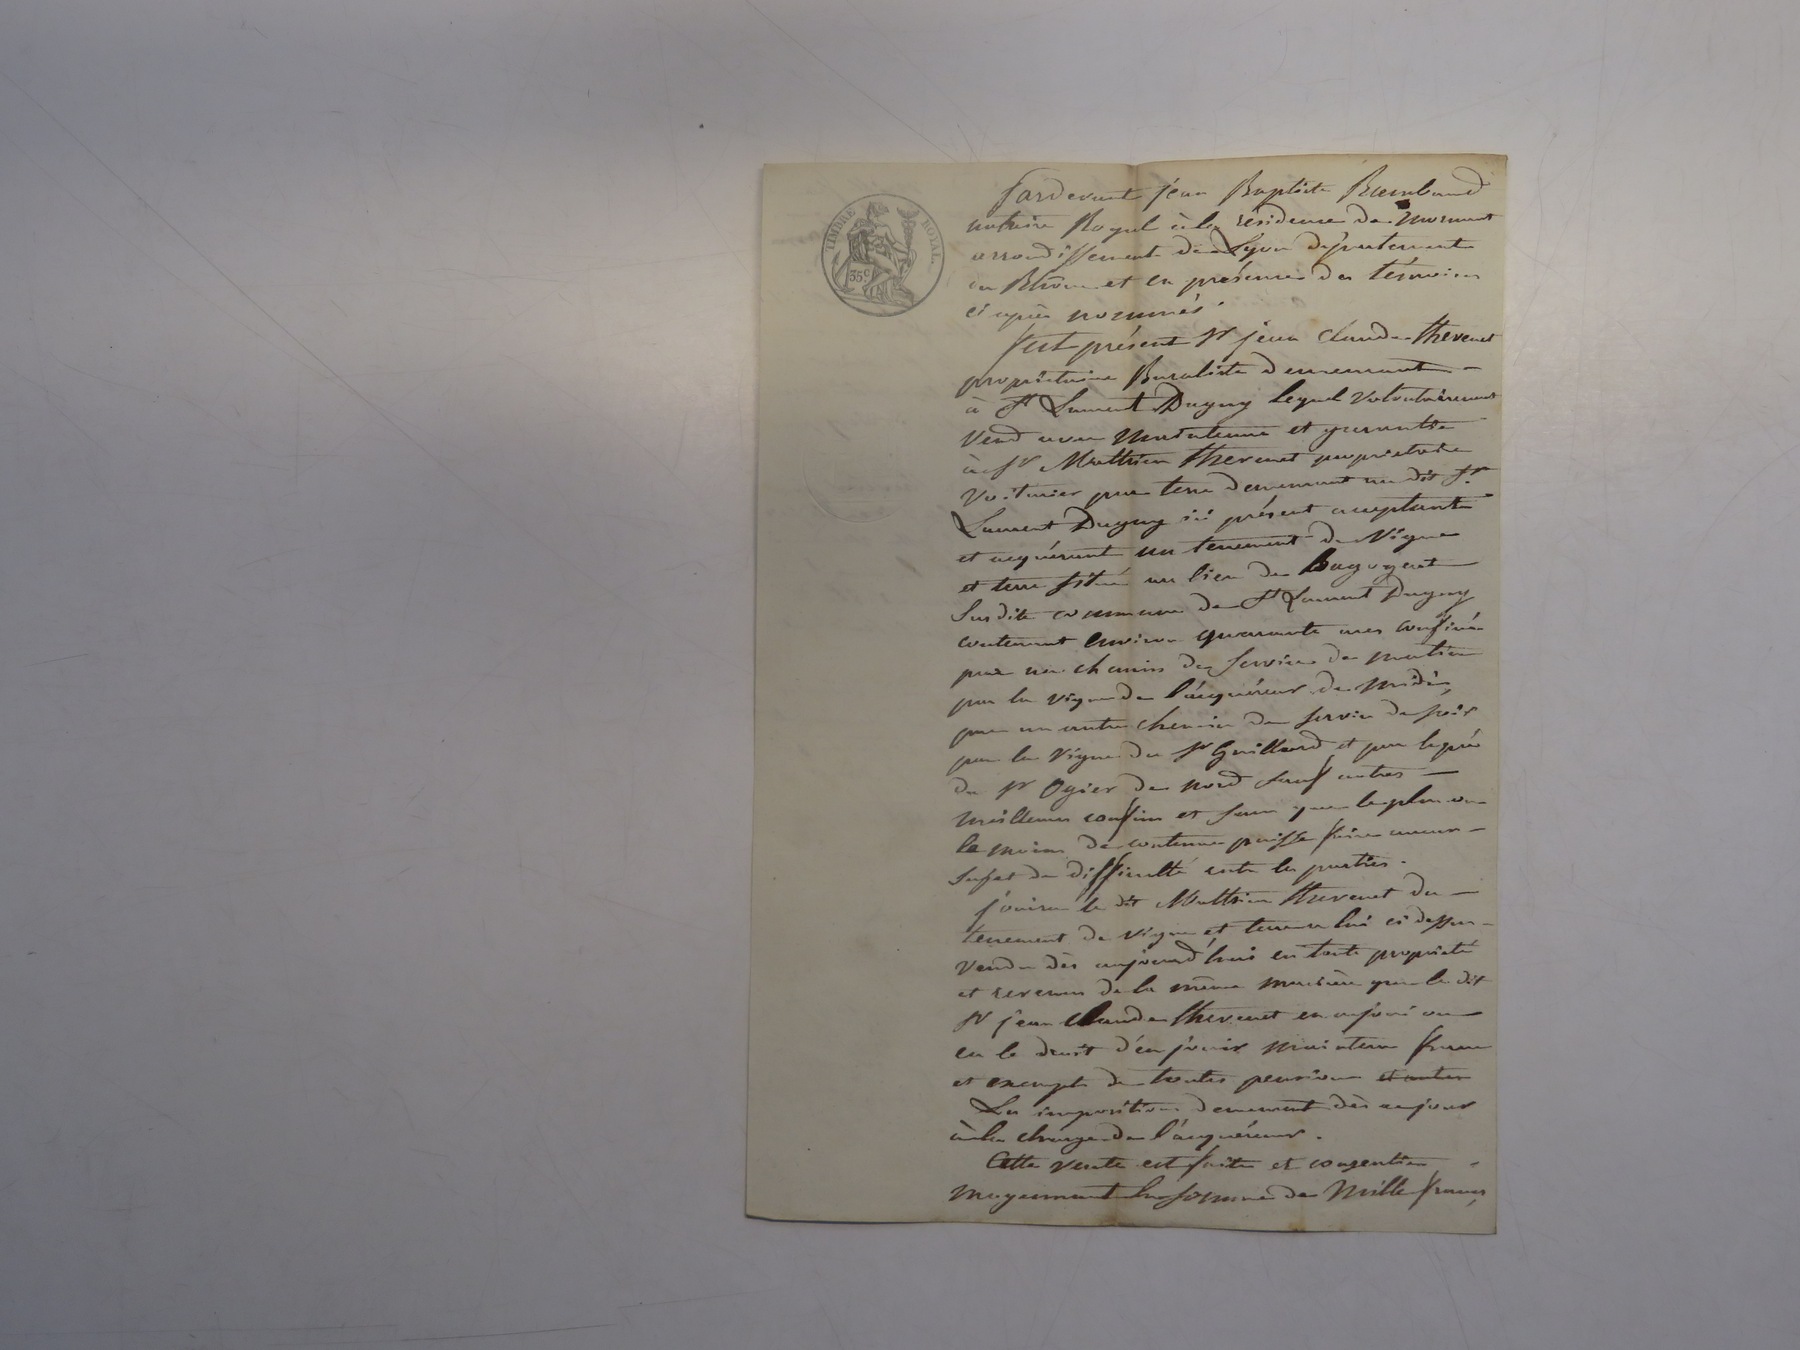 TIMBRE ROYAL.
35c
Pardevant jean Baptiste Rambaud
notaire Royal à la résidence de Mornant
arrondissement de Lyon département
du Rhône et en présence des témoins
ci après nommés
Fut présent Sr jean Claude thevenet
propriétaire Buraliste demeurant
à St Laurent Dagny lequel volontairement
vend avec maintenue et garantie
à Sr Mathieu thevenet propriétaire
voiturier par terre demeurant au dit St
Laurent Dagny ici présent acceptant
et acquérant un tenement de Vigne
et terre situé au lieu de
Susdite commune de St Laurent Dagny
contenant environ quarante ares confiné
par un chemin de service de matin
par la vigne de l'acquéreur de midi,
par un autre chemin de service de soir
par la Vigne du Sr Guillard et par le pré
du Sr Ogier de nord sauf autres
meilleurs confins et sans que le plus ou
le moins de contenue puisse faire aucun
sujet de difficulté entre les parties.
jouira le dit Mathieu thevenet du
tenement de vigne et terre à lui ci dessus
vendu dès aujourd'hui en toute propriété
et revenus de la même manière que le dit
Sr jean Claude thevenet en a joui ou
eu le droit d'en jouir maintenu franc
et exempt de toutes pensions et autres
Les impositions demeurent dès ce jour
à la charge de l'acquéreur.
Cette vente est faite et consentie
moyennant la somme de Mille francs,